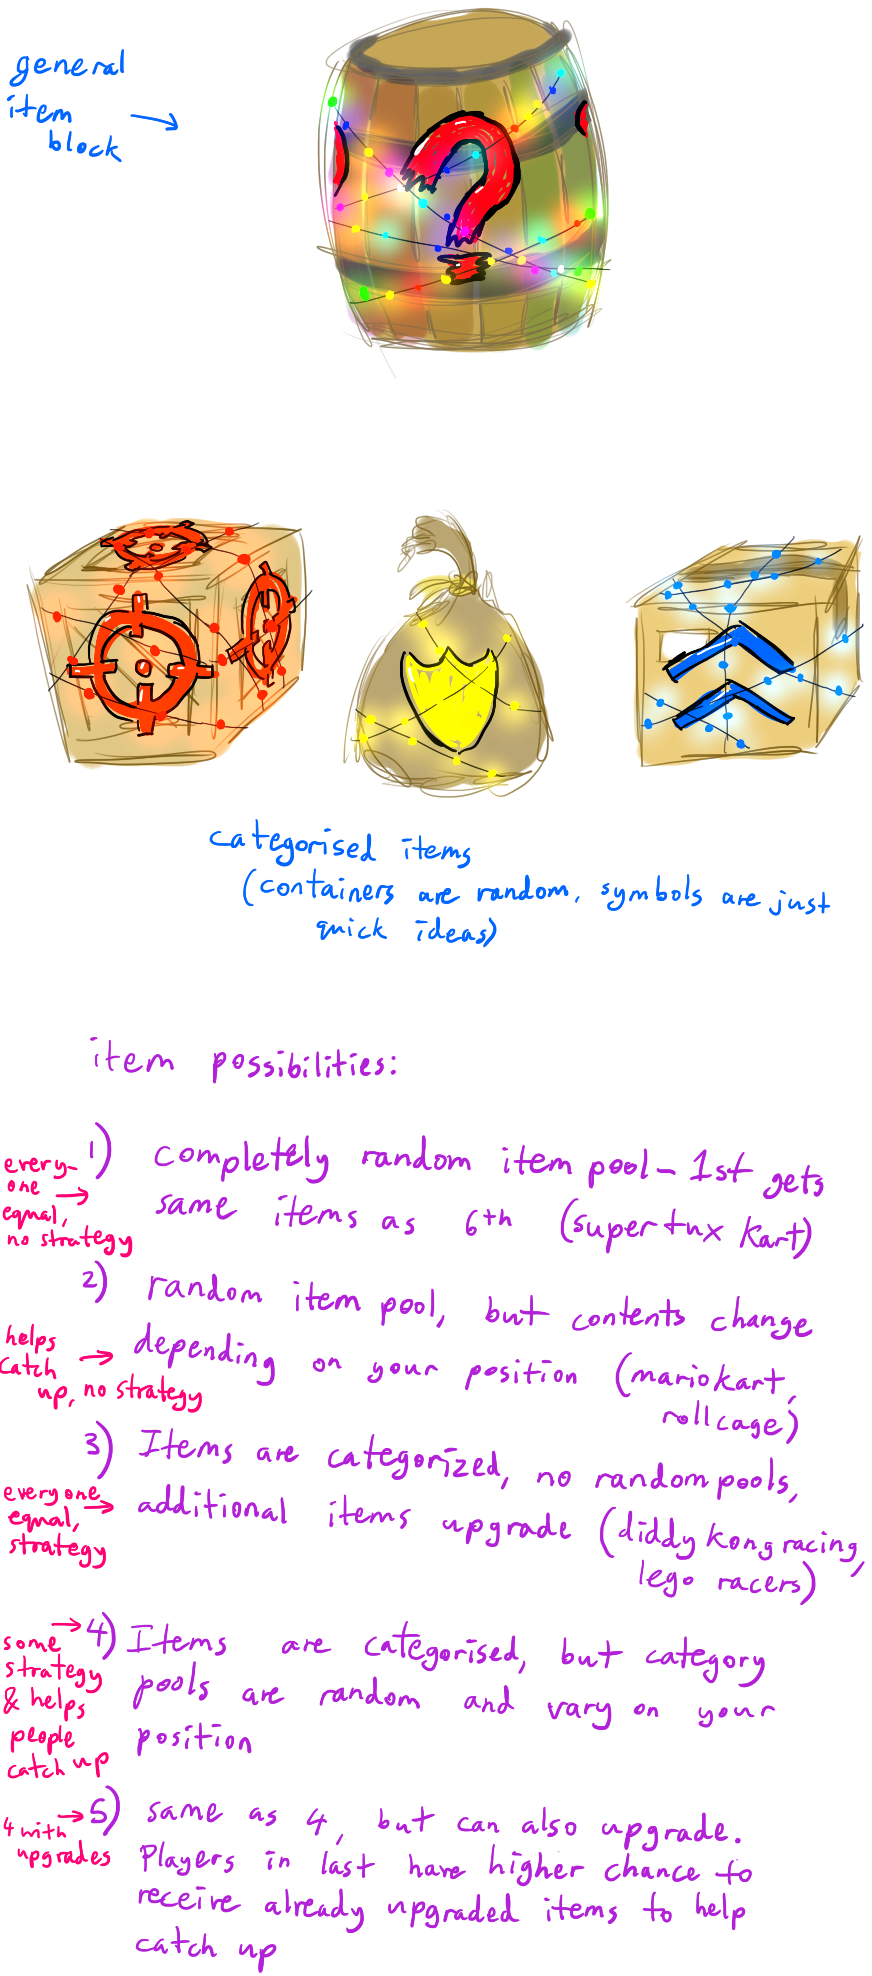 general
item
block
?
categorised items
(containers are random, symbols are just
quick ideas)
item possibilities:
1) completely random item pool - 1st gets
same items as 6th (supertux kart)
every-
one
equal,
no strategy
2) random item pool, but contents change
depending on your position (mariokart,
rollcage)
helps
catch
up, no strategy
3) Items are categorized, no random pools,
additional items upgrade (diddy kong racing,
lego racers)
everyone
equal,
strategy
4) Items are categorised, but category
pools are random and vary on your
position
some
strategy
& helps
people
catch up
5) same as 4, but can also upgrade.
Players in last have higher chance to
receive already upgraded items to help
catch up
4 with
upgrades